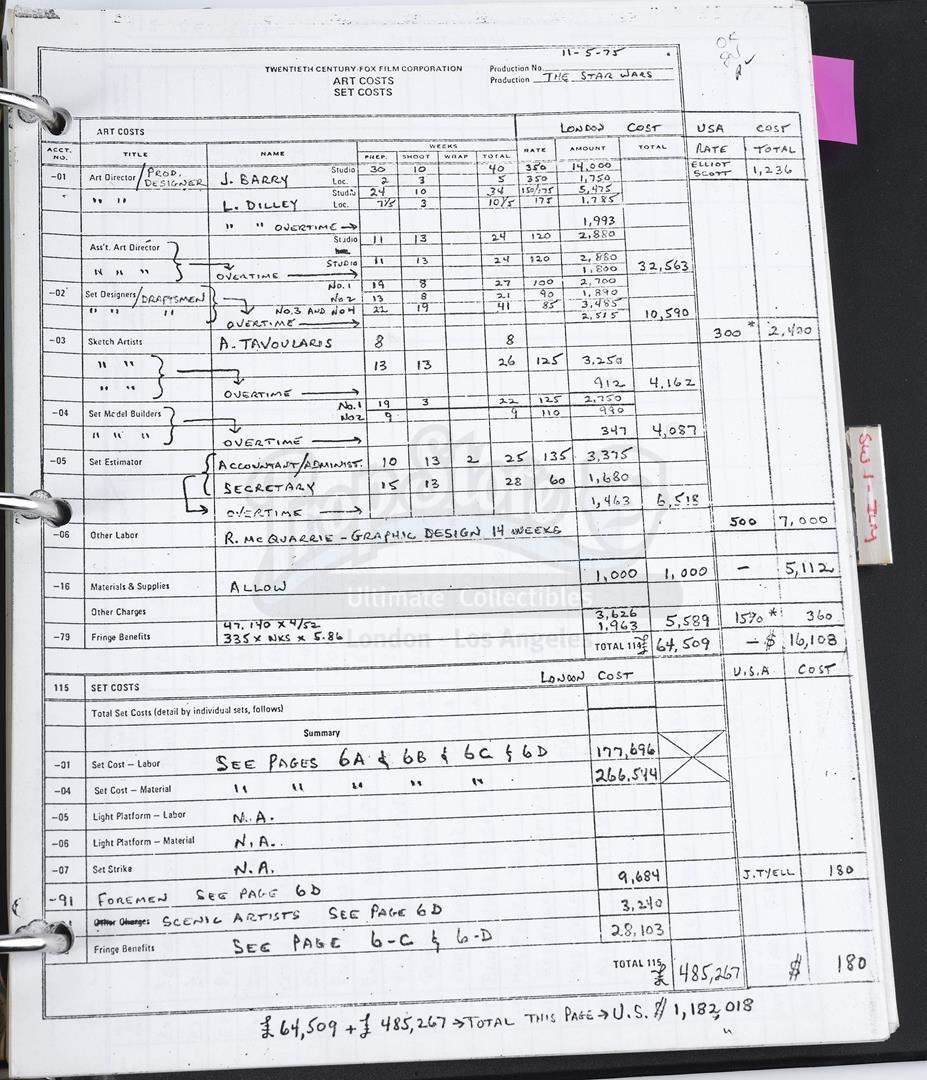 11-5-75
TWENTIETH CENTURY-FOX FILM CORPORATION Production No.
ART COSTS Production THE STAR WARS
SET COSTS
ART COSTS LONDON COST USA COST
ACCT. NO. TITLE NAME WEEKS PREP. SHOOT WRAP TOTAL RATE AMOUNT TOTAL RATE TOTAL
-01 Art Director/PROD. DESIGNER J. BARRY Studio 30 10 40 350 14,000 ELLIOT SCOTT 1,236
Loc. 2 3 5 350 1,750
" " L. DILLEY Studio 24 10 34 150/175 5,475
Loc. 7 1/5 3 10 1/5 175 1,785
" " OVERTIME → 1,993
Ass't. Art Director Studio 11 13 24 120 2,880
" " " STUDIO 11 13 24 120 2,880
OVERTIME → 1,800 32,563
-02 Set Designers/DRAFTSMEN No.1 19 8 27 100 2,700
" " " No2 13 8 21 90 1,890
No.3 AND No4 22 19 41 85 3,485
OVERTIME → 2,515 10,590
-03 Sketch Artists A. TAVOULARIS 8 8 300* 2,400
" " 13 13 26 125 3,250
" " OVERTIME → 912 4,162
-04 Set Model Builders No.1 19 3 22 125 2,750
No2 9 9 110 990
" " " OVERTIME → 347 4,087
-05 Set Estimator ACCOUNTANT/ADMINIST. 10 13 2 25 135 3,375
SECRETARY 15 13 28 60 1,680
OVERTIME → 1,463 6,518
-06 Other Labor R. MCQUARRIE - GRAPHIC DESIGN 14 WEEKS 500 7,000
-16 Materials & Supplies ALLOW 1,000 1,000 - 5,112
Other Charges 47,140 x 4/52 3,626
-79 Fringe Benefits 335 x WKS x 5.86 1,963 5,589 15%* 360
TOTAL 114 £ 64,509 - $ 16,108
115 SET COSTS LONDON COST U.S.A. COST
Total Set Costs (detail by individual sets, follows)
Summary
-01 Set Cost – Labor SEE PAGES 6A & 6B & 6C & 6D 177,696
-04 Set Cost – Material " " " " " 266,544
-05 Light Platform – Labor N.A.
-06 Light Platform – Material N.A.
-07 Set Strike N.A.
-91 FOREMEN SEE PAGE 6D 9,684 J.TYELL 180
Other Charges SCENIC ARTISTS SEE PAGE 6D 3,240
Fringe Benefits SEE PAGE 6-C & 6-D 28,103
TOTAL 115 £ 485,267 $ 180
£ 64,509 + £ 485,267 → TOTAL THIS PAGE → U.S. $ 1,182,018
SW I - ILM
Propstore
Ultimate Collectibles
London - Los Angeles